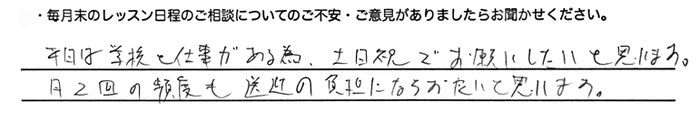 ・毎月末のレッスン日程のご相談についてのご不安・ご意見がありましたらお聞かせください。
平日は学校と仕事がある為、土日祝でお願いしたいと思います。
月2回の頻度も送迎の負担にならないと思います。